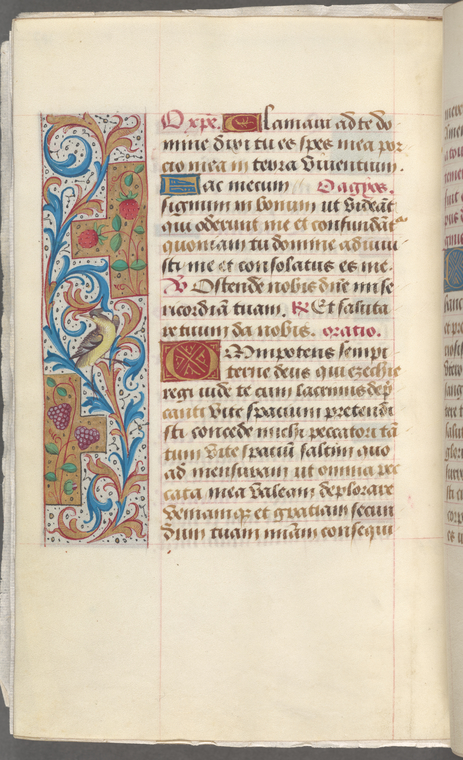 O xpe. Clamaui ad te do
mine dixi tu es spes mea por
cio mea in terra viuentium.
Fac mecum O agyos.
signum in bonum ut videāt
qui oderunt me et confundāt
quoniam tu domine adiuui
sti me et consolatus es me.
V Ostende nobis dn̄e mise
ricordiā tuam. R Et saluta
re tuum da nobis. oratio.
Omnipotens sempi
terne deus qui ezechie
regi iude te cum lacrimis dep̄
canti vite spacium pretendi
sti concede michi peccatori tā
tum vite spaciū saltim quo
ad mensuram ut omnia pec
cata mea valeam deplorare
veniamq; et gratiam secun
dum tuam miām consequi